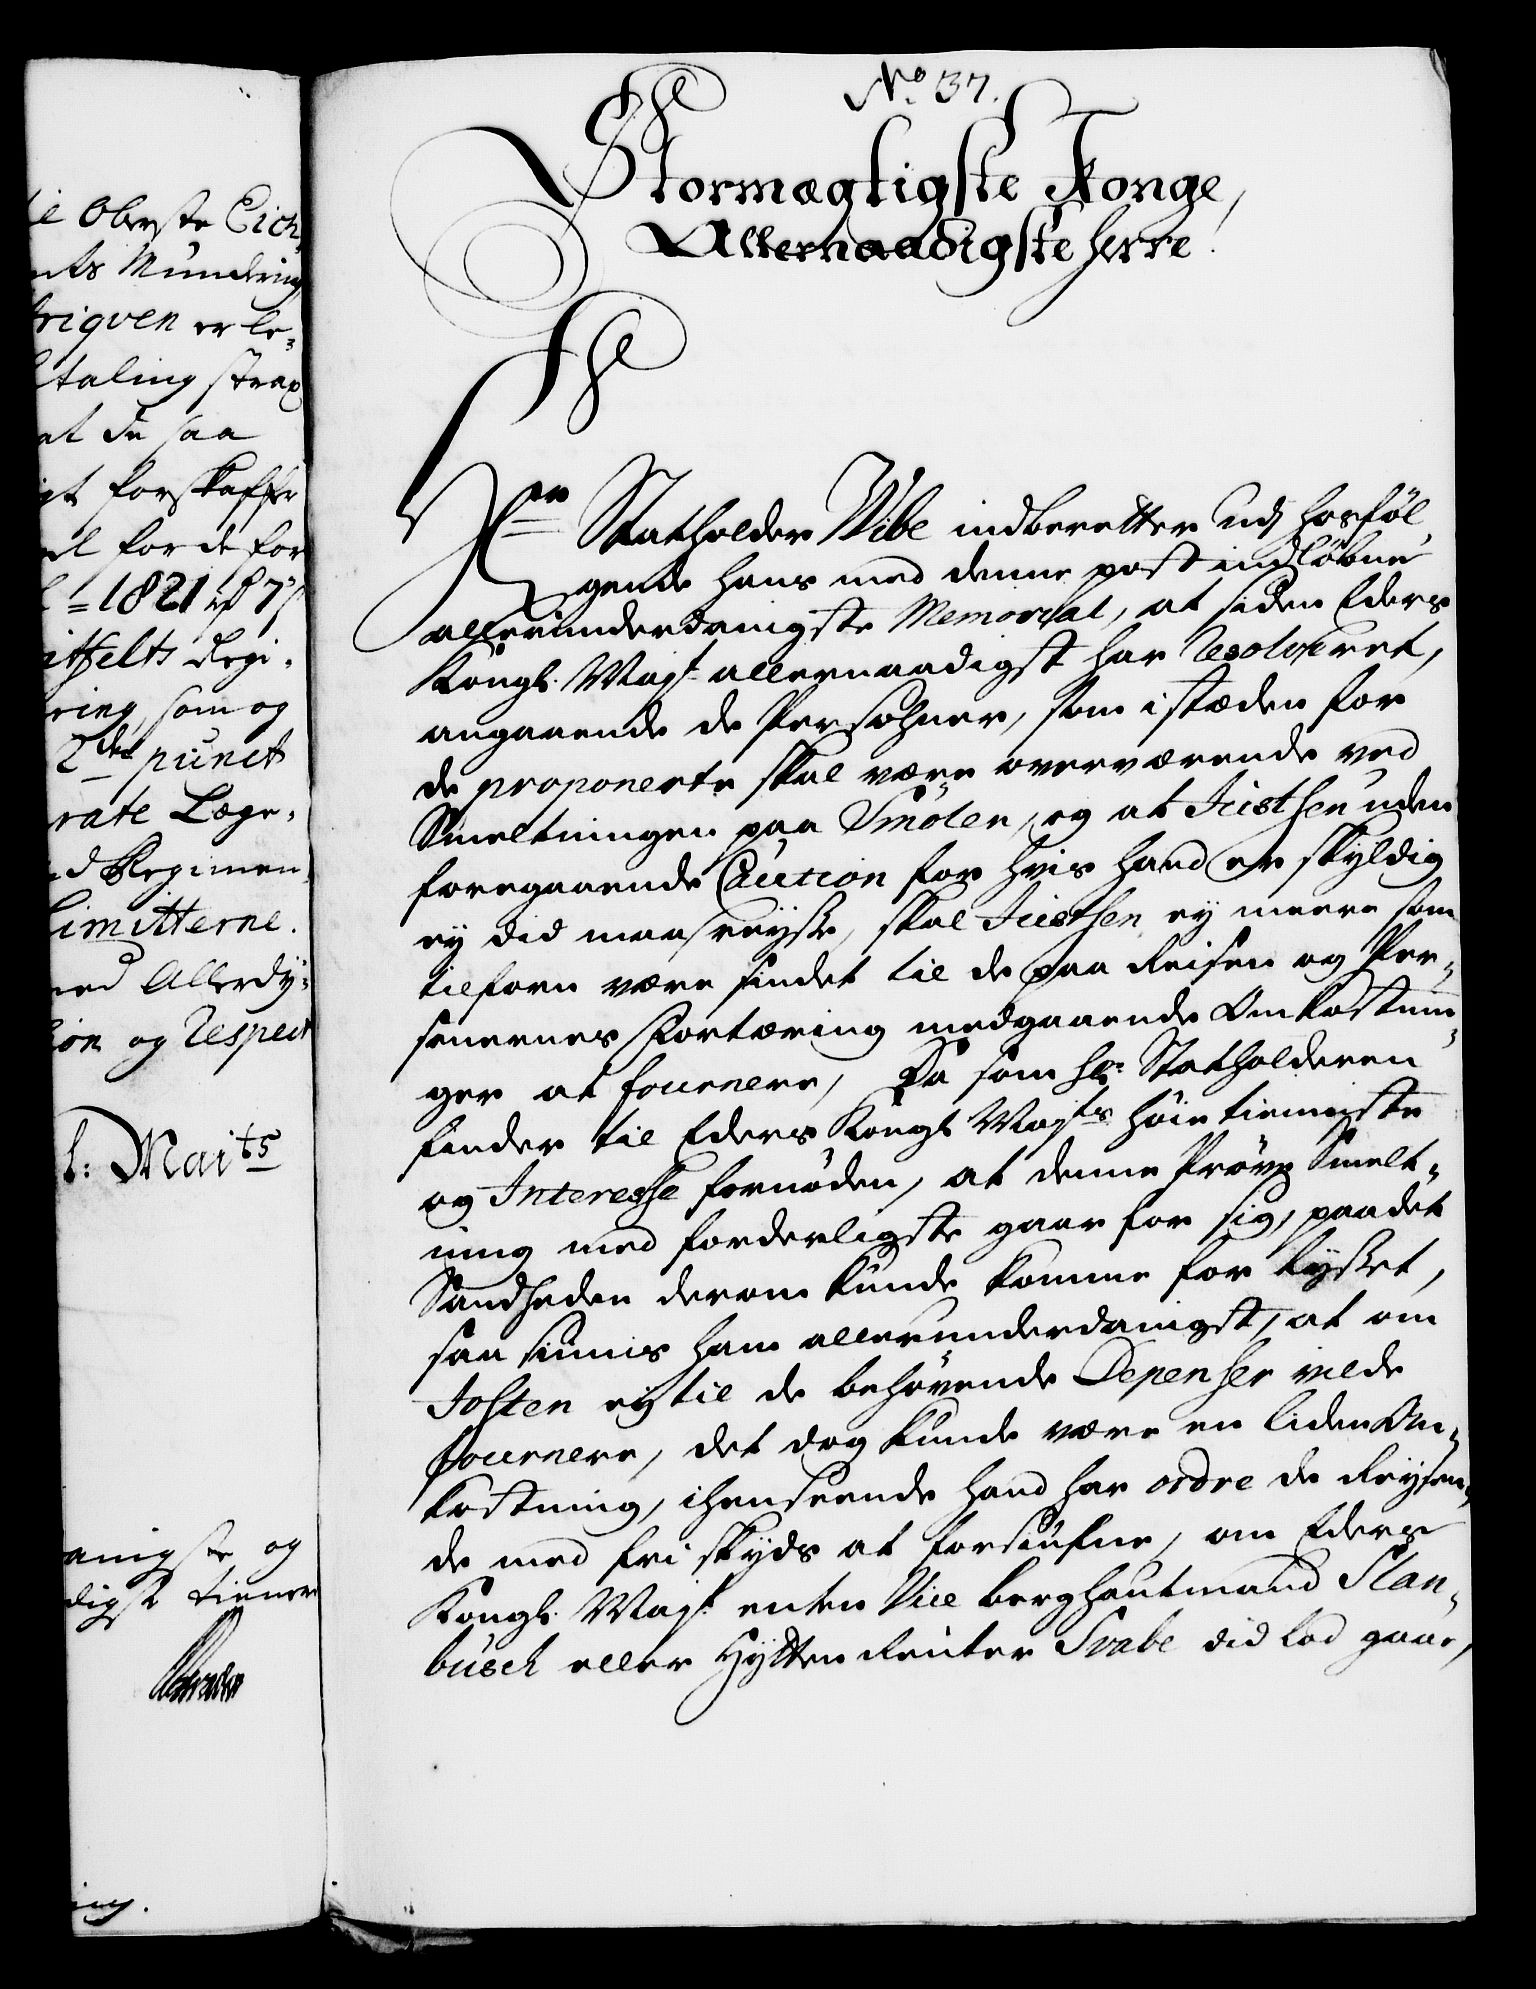 le Oberste Eich
nts Mundering
friqven er le-
taling strax
at du saa
gt forskaffe
el for de for
= 1821 rd 75
itfelts Regi-
ring, som og
2den punct
rate Læge-
d Regimen
Limitterne.
ned Allerdy-
ion og Respect
l: Maits
anigste og
digst tiener
ing.
No. 37.
Stormægtigste Konge,
Allernaadigste Herre!
Hr. Statholder Wibe indberetter udj hosföl
gende hans med denne post indløbne
allerunderdanigste Memorial, at siden Eders
Kongl. Majt. allernaadigst har Resolveret,
angaaende de Persohner, som i stæden for
de proponerte skal være overværende ved
Smeltningen paa Smölen, og at Justsen uden
foregaaende Caution for hvis hand er skyldig
ey did maa reyse, skal Justsen ey meere som
tilforn være sindet til de paa Reisen og Per-
sonernes Fortæring medgaaende Omkostnin-
ger at fournere, Da som hr. Statholderen
finder til Eders Kongl. Majts höie tienniste
og Interesse fornöden, at denne Pröve Smelt-
ning med forderligste gaar for sig, paa det
Sandheden derom kunde komme for lyset,
saa siunis ham allerunderdanigst, at om
Josten ey til de behövende Depenser vilde
fournere, det dog kunde være en liden Om-
kostning, i henseende hand har ordre de Reysen-
de med fri skyds at forsiufne, om Eders
Kongl. Majt. enten Vice berghautmand Slan-
busch eller Hytten Reuter Svabe did lod gaae,